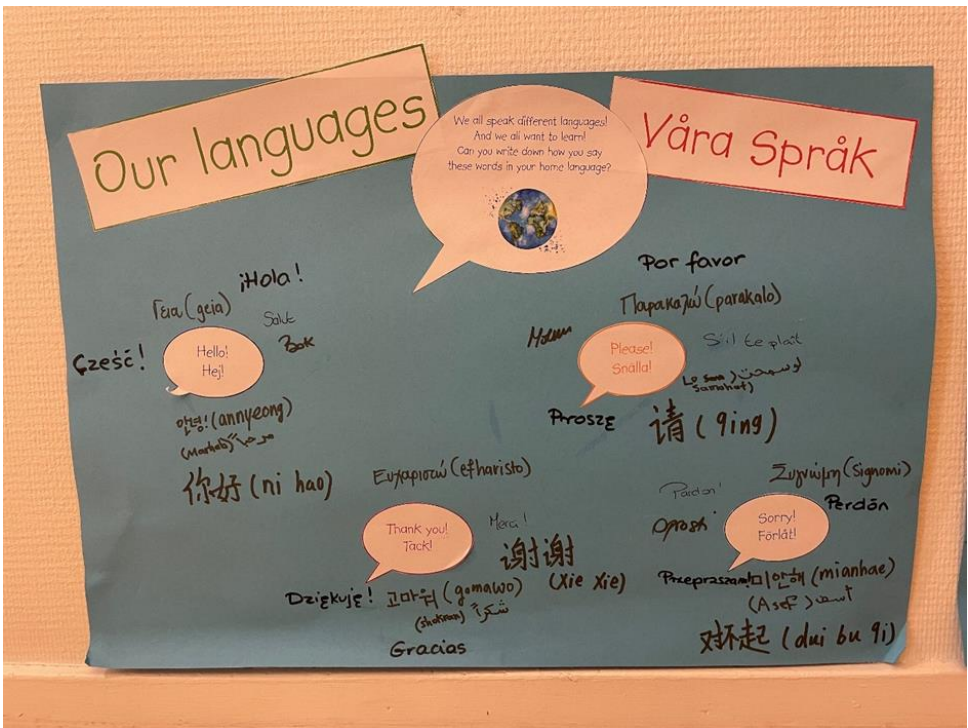 Our languages
We all speak different languages!
And we all want to learn!
Can you write down how you say
these words in your home language?
Våra Språk
¡Hola!
Γεια (geia)
Salut
Bok
Cześć!
Hello!
Hej!
안녕! (annyeong)
(Marhab) مرحباً
你好 (ni hao)
Por favor
Παρακαλώ (parakalo)
Molim
S'il te plaît
Please!
Snälla!
لو سمحت
Proszę
请 (qing)
Ευχαριστώ (efharisto)
Merci!
Thank you!
Tack!
谢谢
(xie xie)
Dziękuję!
고마워 (gomawo)
(shokran) شكراً
Gracias
Συγνώμη (signomi)
Pardon!
Perdón
Oprosti
Sorry!
Förlåt!
Przepraszam!
미안해 (mianhae)
(Asef) آسف
对不起 (dui bu qi)